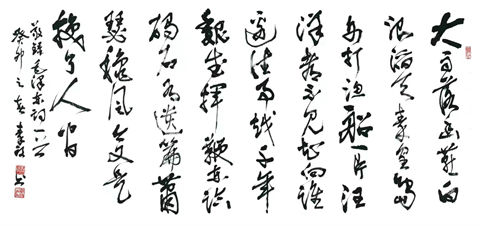 大雨落幽燕白
浪滔天秦皇岛
外打渔船一片汪
洋都不见知向谁
边往事越千年
魏武挥鞭东临
碣石有遗篇萧
瑟秋风今又是
换了人间
敬录毛泽东词一首
癸卯之春